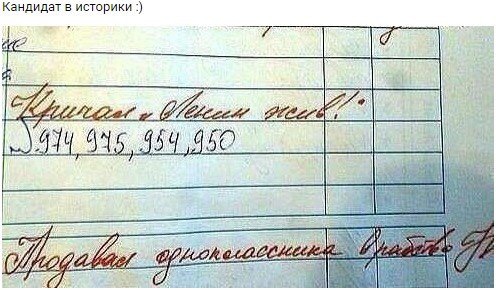 Кандидат в историки :)
Кричал „Ленин жив!"
974, 975, 954, 950
Продавал одноклассника в рабство